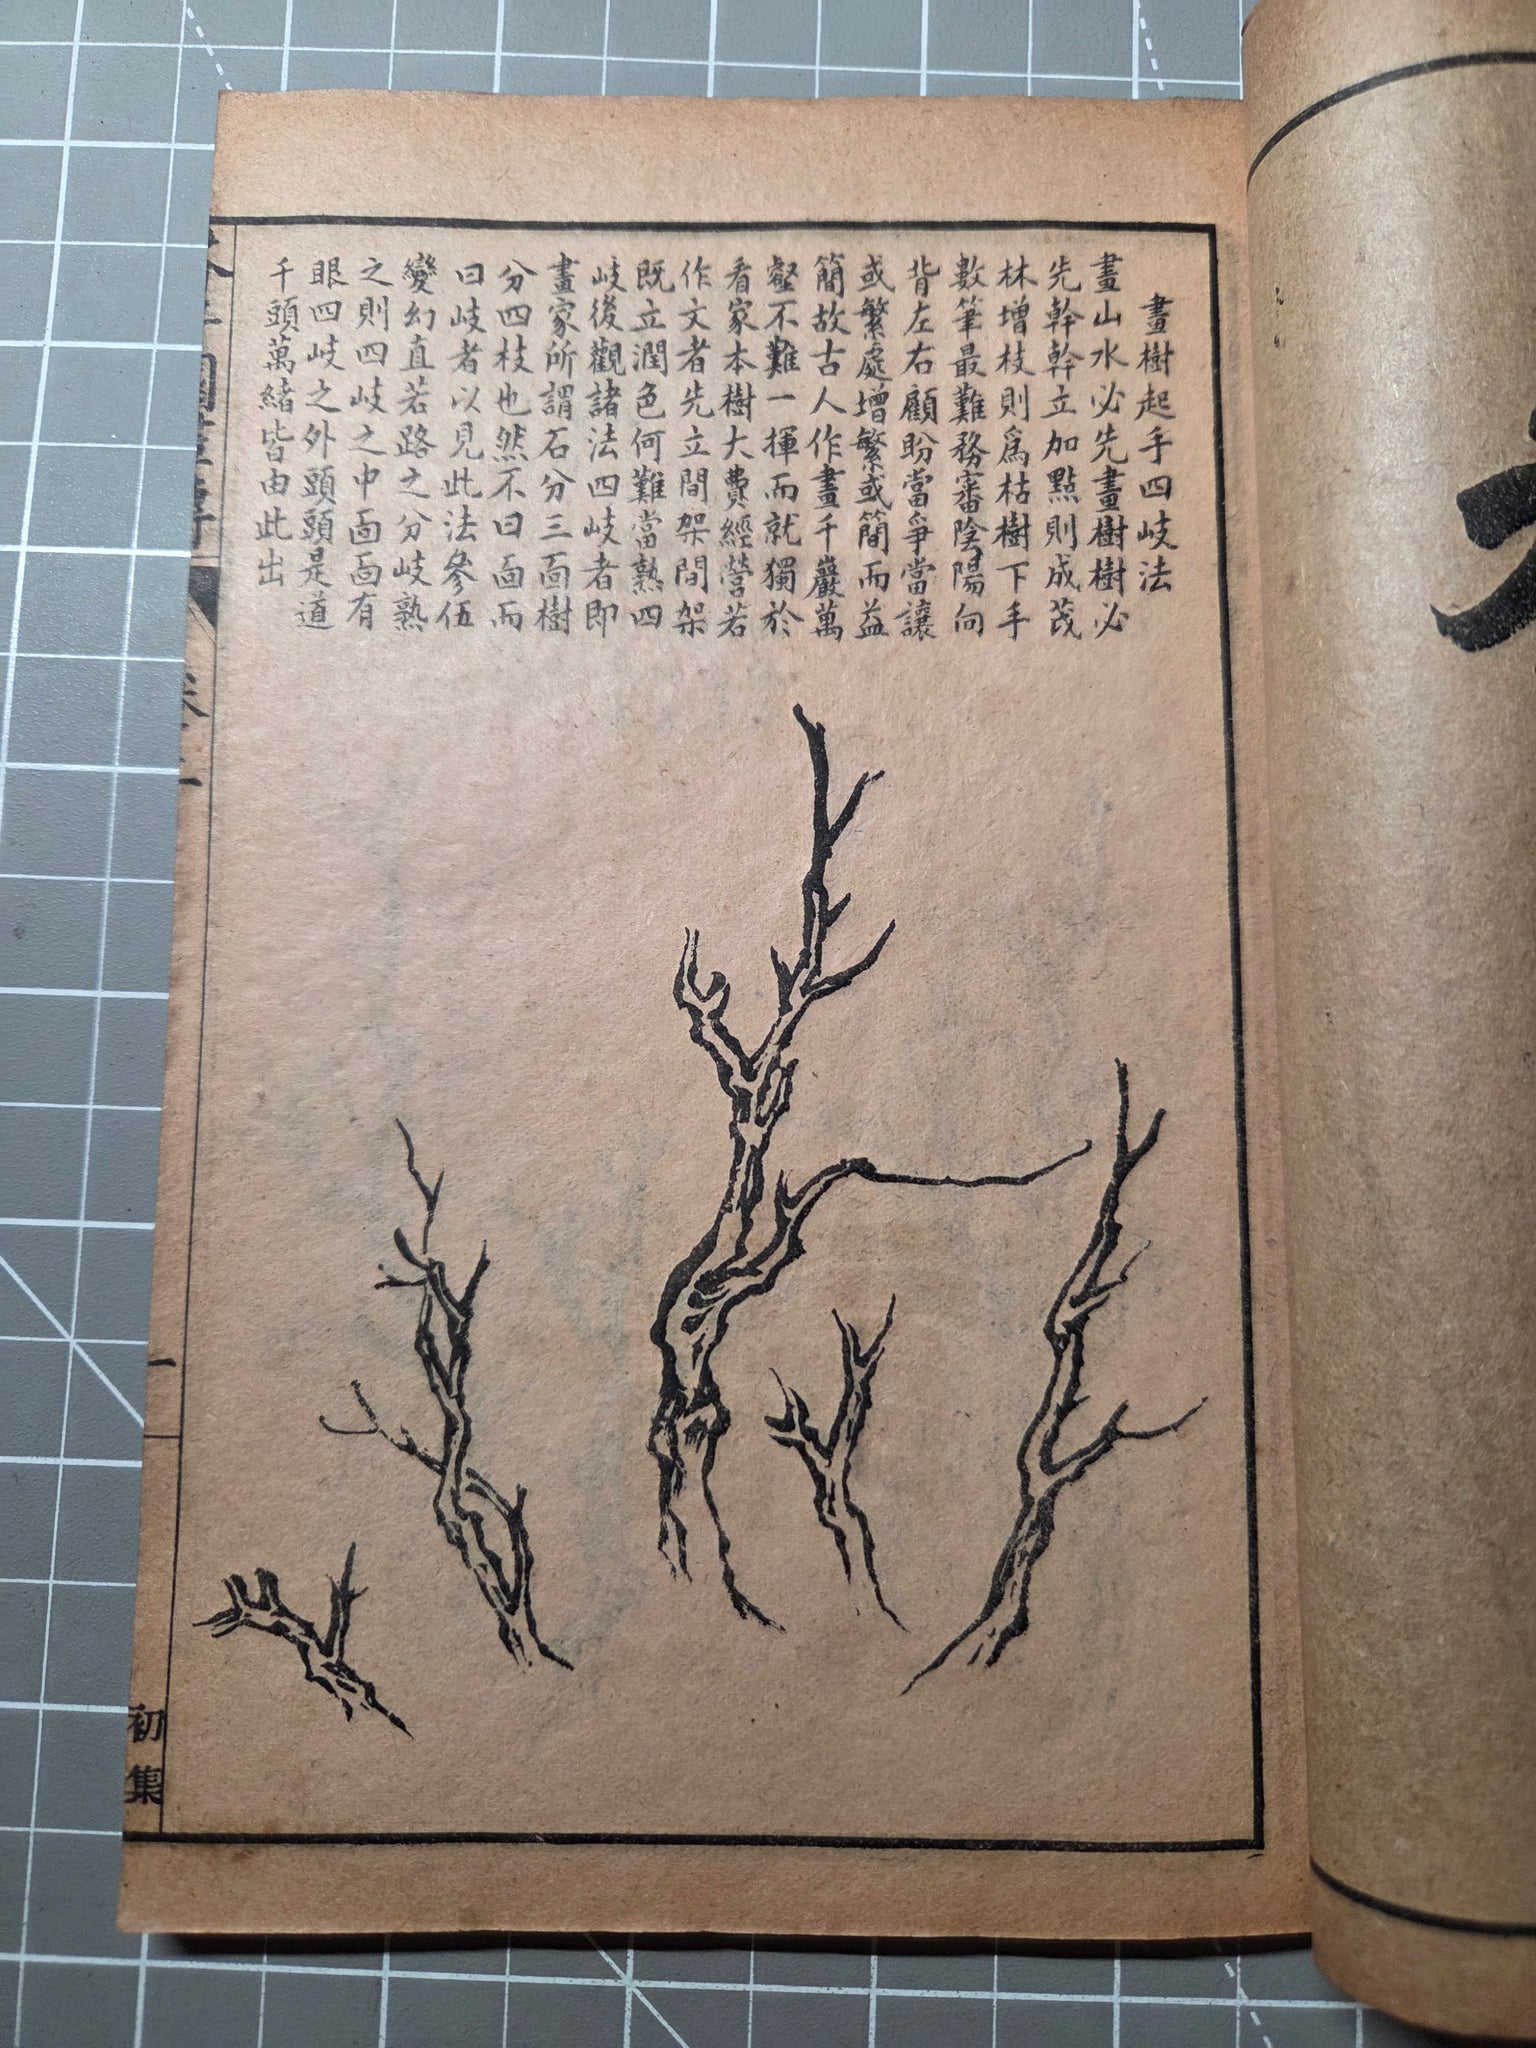 畫樹起手四岐法
畫山水必先畫樹樹必
先幹幹立加點則成茂
林增枝則爲枯樹下手
數筆最難務審陰陽向
背左右顧盼當爭當讓
或繁處增繁或簡而益
簡故古人作畫千巖萬
壑不難一揮而就獨於
看家本樹大費經營若
作文者先立間架間架
既立潤色何難當熟四
岐後觀諸法四岐者即
畫家所謂石分三面樹
分四枝也然不曰面而
曰岐者以見此法參伍
變幻直若路之分岐熟
之則四岐之中面面有
眼四岐之外頭頭是道
千頭萬緒皆由此出
一
初集